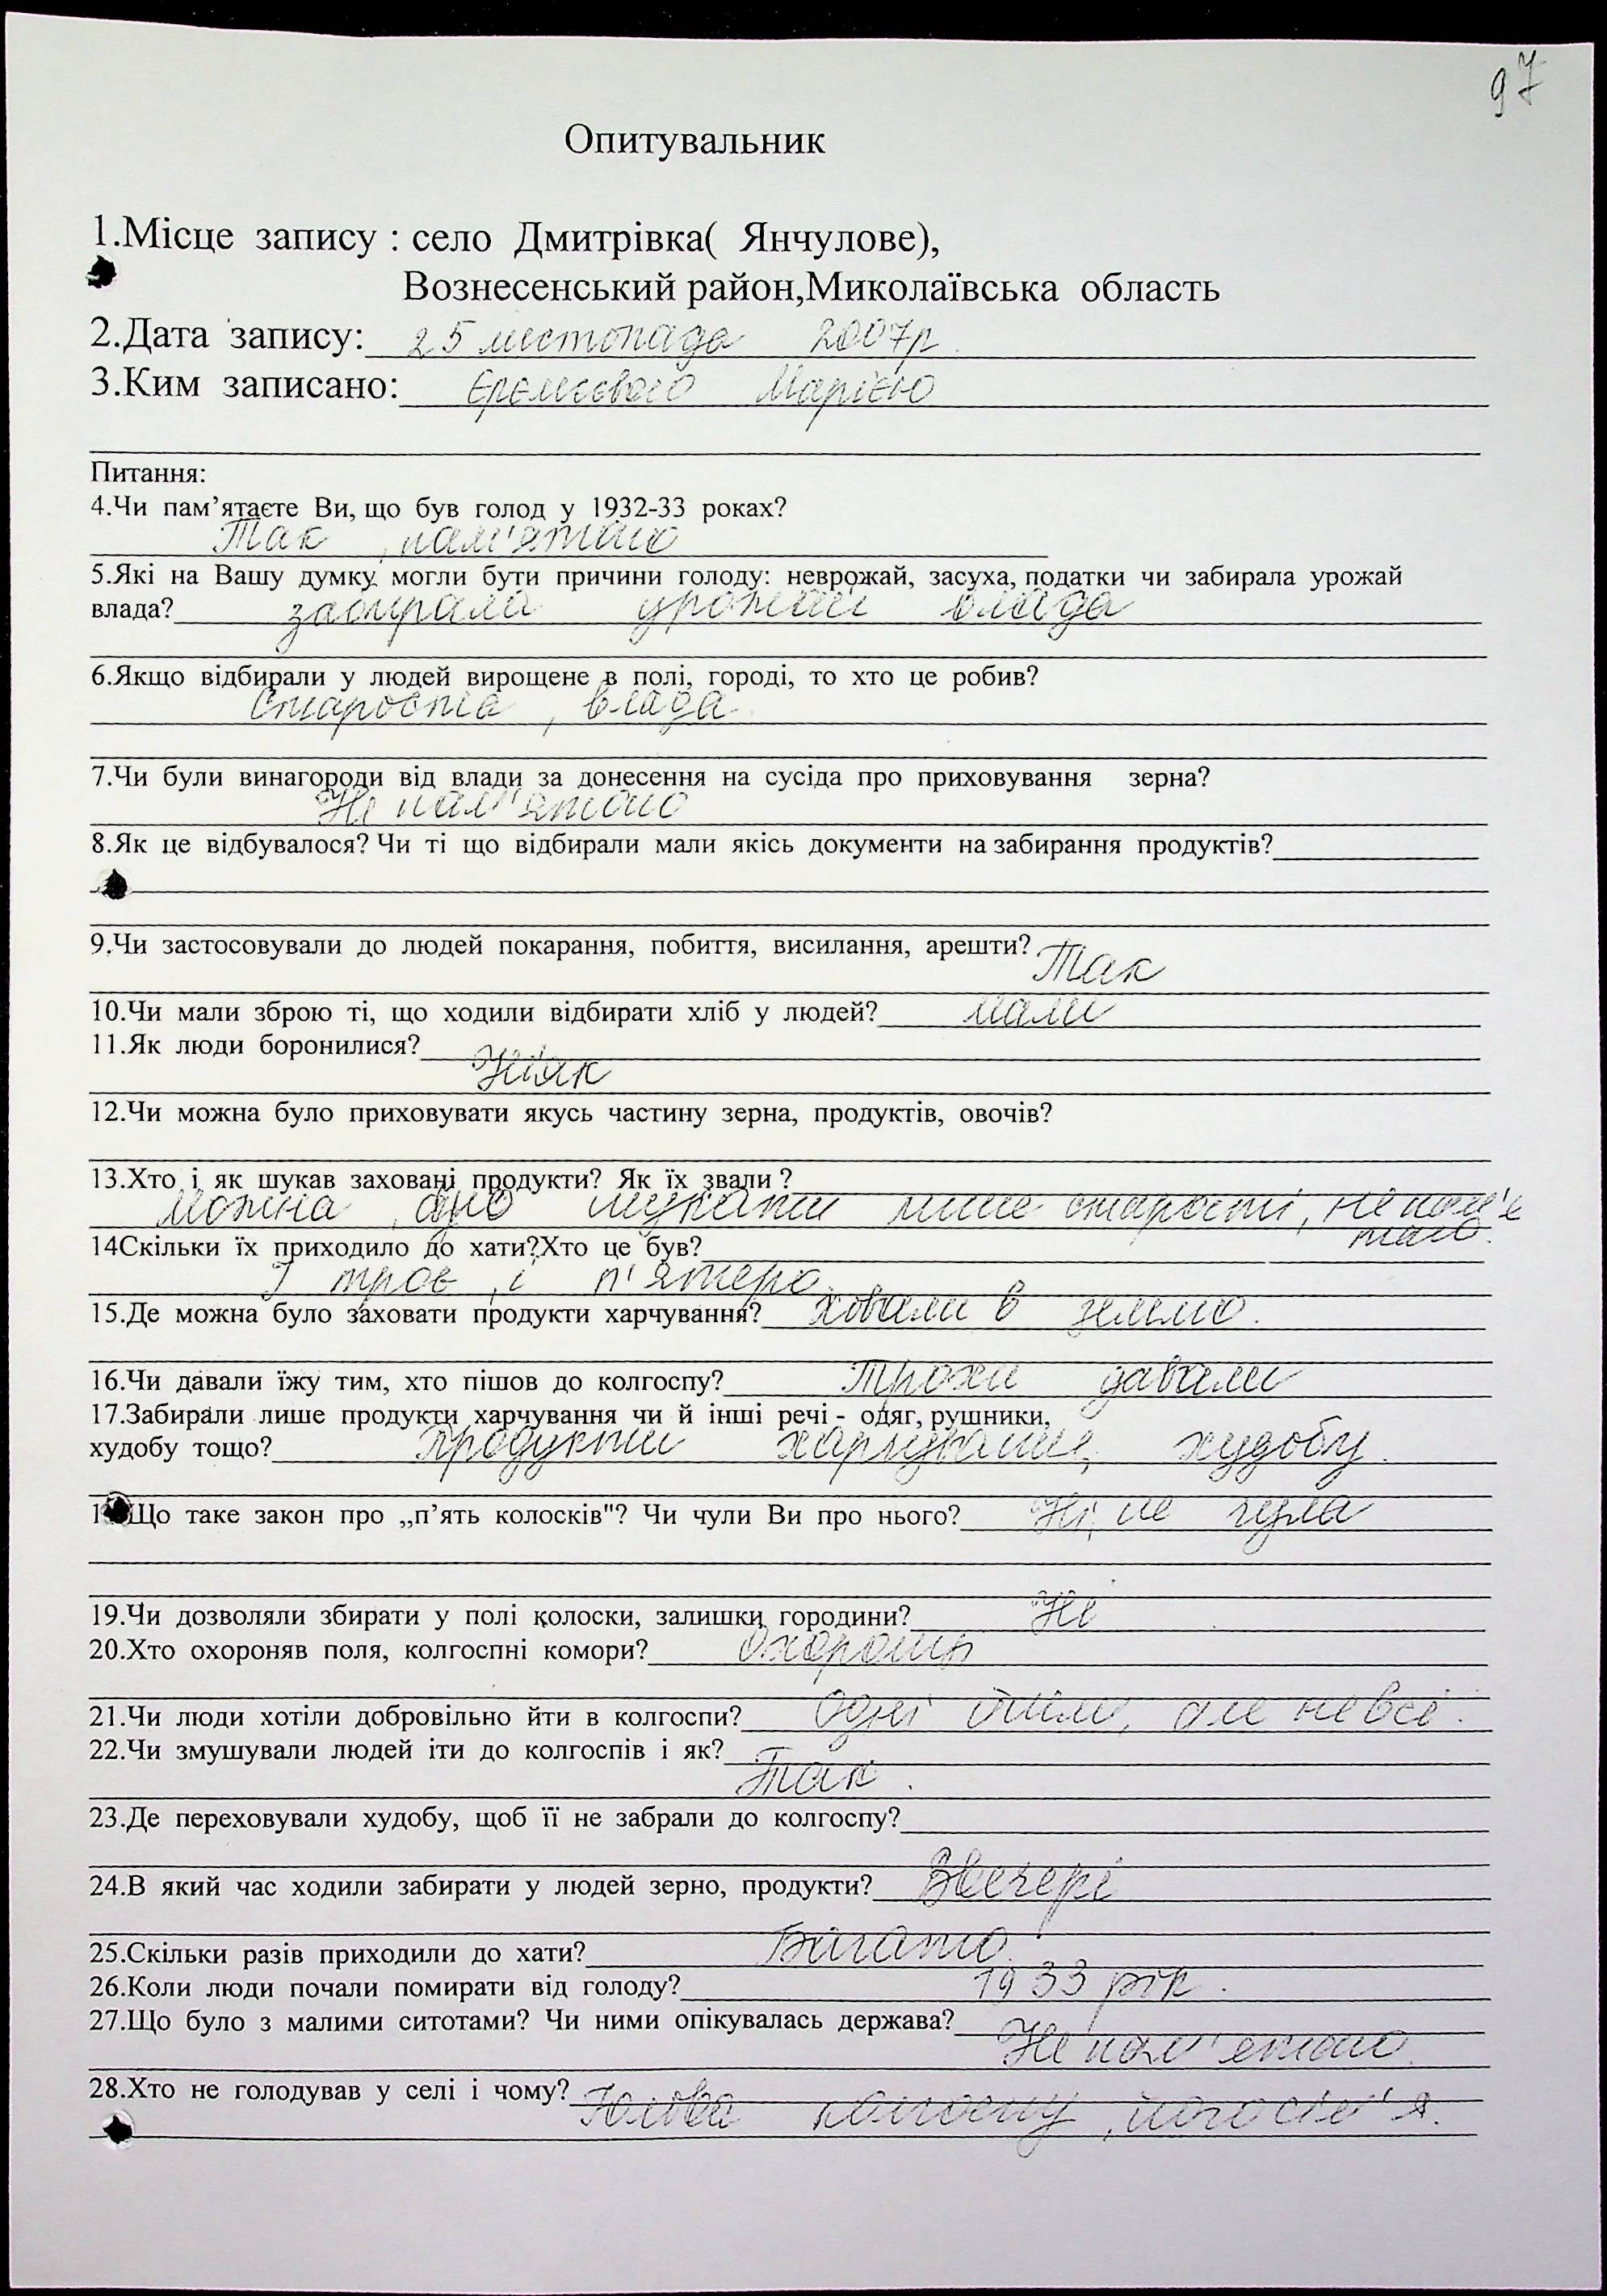 97
Опитувальник
1.Місце запису : село Дмитрівка( Янчулове),
Вознесенський район,Миколаївська область
2.Дата запису: 25 листопада 2007р.
3.Ким записано: Єремєєвою Марією
Питання:
4.Чи пам’ятаєте Ви, що був голод у 1932-33 роках?
Так, пам'ятаю
5.Які на Вашу думку могли бути причини голоду: неврожай, засуха, податки чи забирала урожай
влада? забирала урожай влада
6.Якщо відбирали у людей вирощене в полі, городі, то хто це робив?
Староста, влада.
7.Чи були винагороди від влади за донесення на сусіда про приховування зерна?
Не пам'ятаю
8.Як це відбувалося? Чи ті що відбирали мали якісь документи на забирання продуктів?
9.Чи застосовували до людей покарання, побиття, висилання, арешти? Так
10.Чи мали зброю ті, що ходили відбирати хліб у людей? мали
11.Як люди боронилися?
Ніяк
12.Чи можна було приховувати якусь частину зерна, продуктів, овочів?
13.Хто і як шукав заховані продукти? Як їх звали ?
Можна, шукати лише старості, не пам'я
таю.
14Скільки їх приходило до хати?Хто це був?
І троє, і п'ятеро.
15.Де можна було заховати продукти харчування? Ховали в землю.
16.Чи давали їжу тим, хто пішов до колгоспу? Трохи давали
17.Забирали лише продукти харчування чи й інші речі - одяг, рушники,
худобу тощо? Продукти харчування, худобу.
1 Що таке закон про „п’ять колосків"? Чи чули Ви про нього? Ні, не чула
19.Чи дозволяли збирати у полі колоски, залишки городини? Ні
20.Хто охороняв поля, колгоспні комори? Охоронці
21.Чи люди хотіли добровільно йти в колгоспи? Одні йшли, але не всі.
22.Чи змушували людей іти до колгоспів і як?
Так.
23.Де переховували худобу, щоб її не забрали до колгоспу?
24.В який час ходили забирати у людей зерно, продукти? Ввечері
25.Скільки разів приходили до хати? Багато.
26.Коли люди почали помирати від голоду? 1933 рік.
27.Що було з малими ситотами? Чи ними опікувалась держава?
Не пам'ятаю.
28.Хто не голодував у селі і чому? Голова колгоспу, його сім'я.